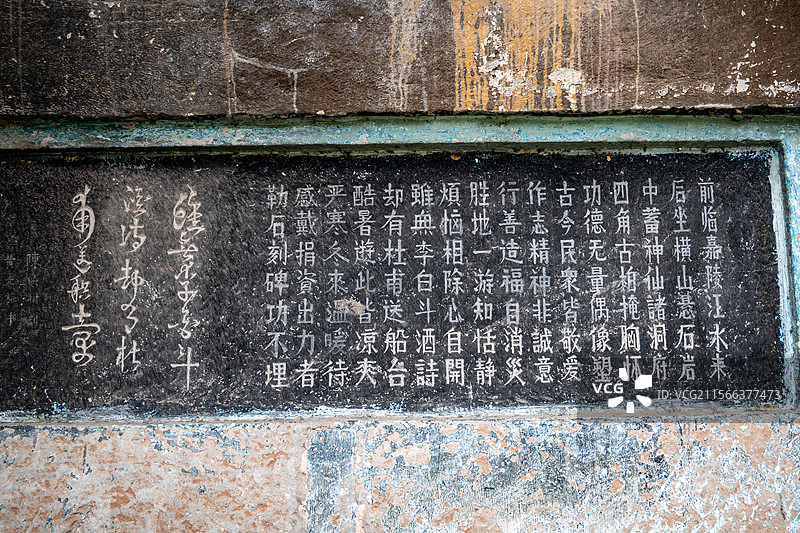 前临嘉陵江水来
后坐横山悬石岩
中蓄神仙諸洞府
四角古柏掩胸怀
功德无量偶像塑
古今民衆皆敬爱
作志精神非誠意
行善造福自消災
胜地一游知恬静
煩恼相除心自開
雖無李白斗酒詩
却有杜甫送船台
酷暑遊此皆凉爽
严寒冬來温暖待
感戴捐資出力者
勒石刻碑功不埋
VCG
VCG.COM
ID:VCG211566377473